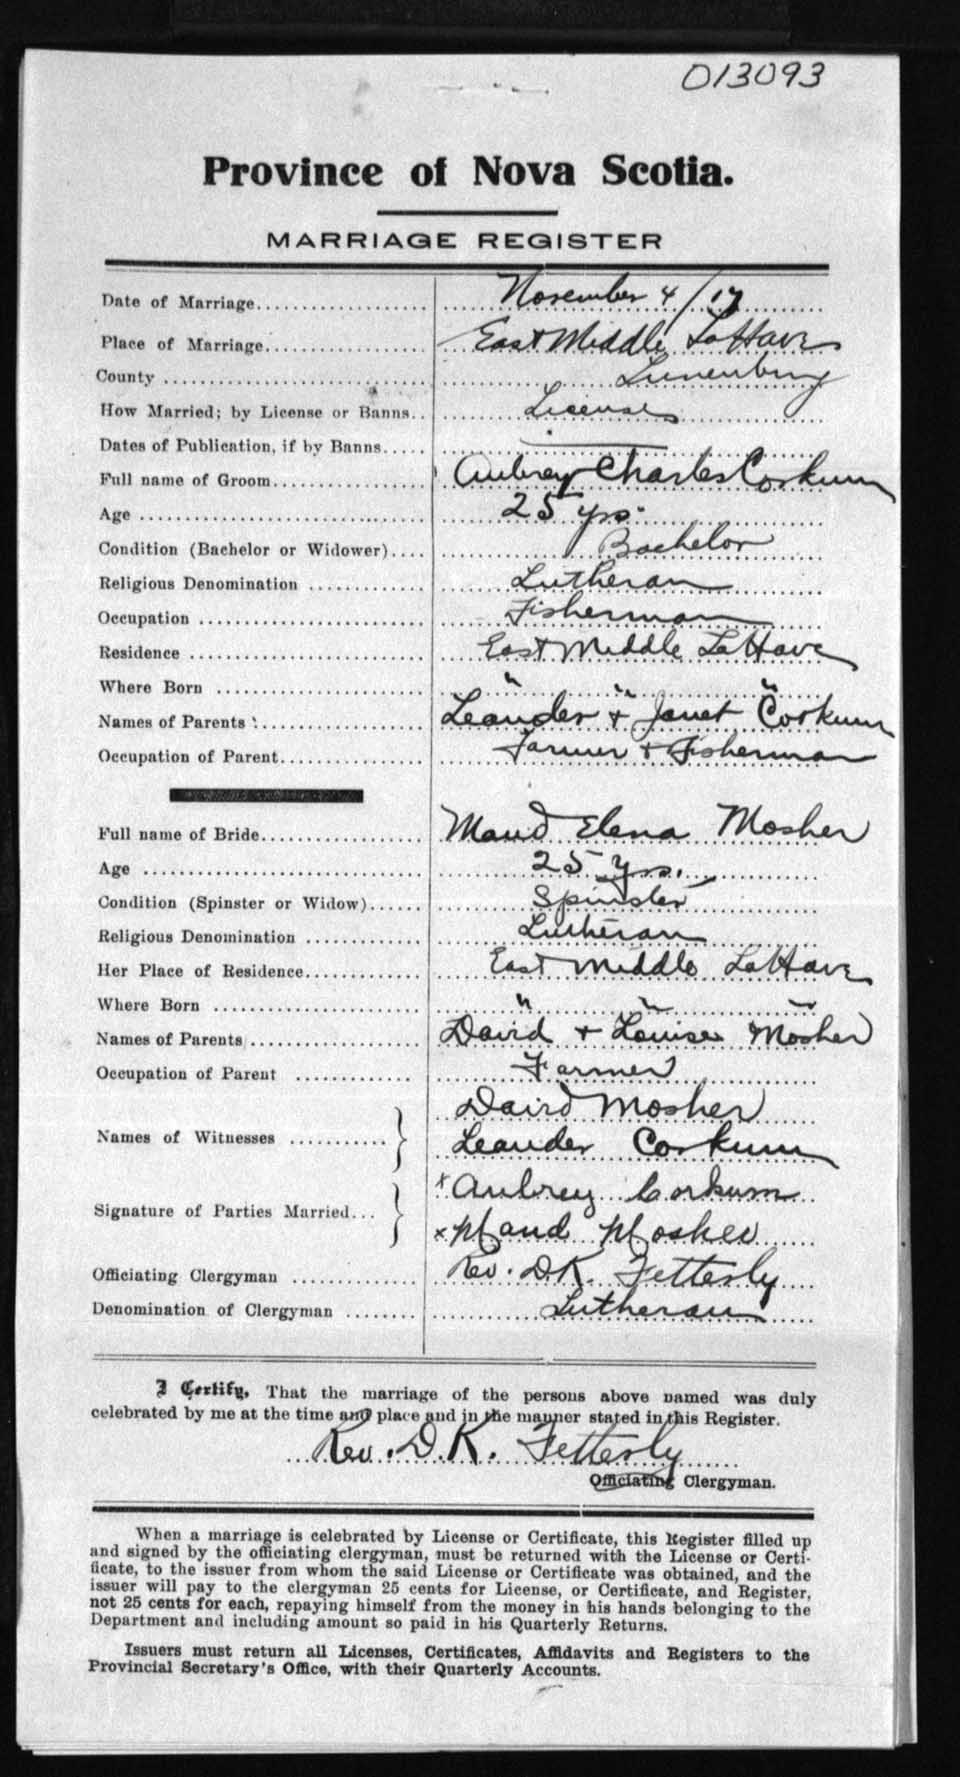 013093
Province of Nova Scotia.
MARRIAGE REGISTER
Date of Marriage.................. November 4/17
Place of Marriage.................. East Middle LaHave
County .................. Lunenburg
How Married; by License or Banns.. License
Dates of Publication, if by Banns..... —
Full name of Groom.................. Aubrey Charles Corkum
Age .................. 25 yrs.
Condition (Bachelor or Widower).... Bachelor
Religious Denomination ............ Lutheran
Occupation .................. Fisherman
Residence .................. East Middle LaHave
Where Born .................. " " "
Names of Parents .................. Leander + Janet Corkum
Occupation of Parent.................. Farmer + Fisherman
Full name of Bride.................. Maud Elena Mosher
Age .................. 25 yrs.
Condition (Spinster or Widow)...... Spinster
Religious Denomination ............ Lutheran
Her Place of Residence............ East Middle LaHave
Where Born .................. " " "
Names of Parents .................. David + Louise Mosher
Occupation of Parent ............ Farmer
Names of Witnesses ........... } David Mosher
Leander Corkum
Signature of Parties Married... } x Aubrey Corkum
x Maud Mosher
Officiating Clergyman ............ Rev. D.K. Fetterly
Denomination of Clergyman ........ Lutheran
I Certify, That the marriage of the persons above named was duly
celebrated by me at the time and place and in the manner stated in this Register.
Rev. D. K. Fetterly
Officiating Clergyman.
When a marriage is celebrated by License or Certificate, this Register filled up
and signed by the officiating clergyman, must be returned with the License or Certi-
ficate, to the issuer from whom the said License or Certificate was obtained, and the
issuer will pay to the clergyman 25 cents for License, or Certificate, and Register,
not 25 cents for each, repaying himself from the money in his hands belonging to the
Department and including amount so paid in his Quarterly Returns.
Issuers must return all Licenses, Certificates, Affidavits and Registers to the
Provincial Secretary's Office, with their Quarterly Accounts.